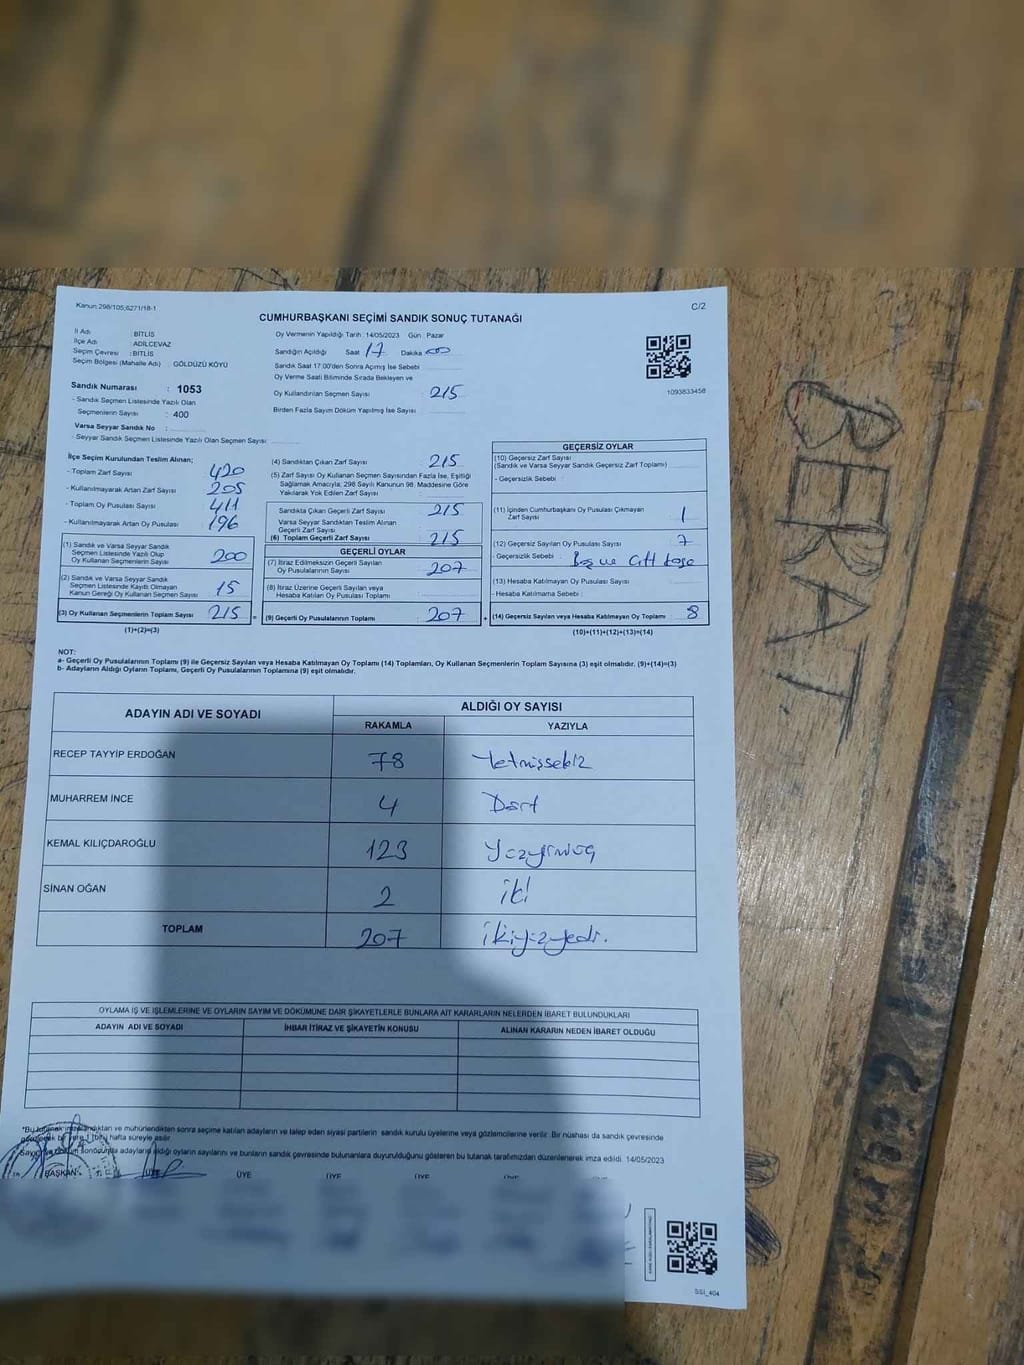 Kanun:298/105;6271/18-1
C/2
CUMHURBAŞKANI SEÇİMİ SANDIK SONUÇ TUTANAĞI
İl Adı : BİTLİS
İlçe Adı : ADİLCEVAZ
Seçim Çevresi : BİTLİS
Seçim Bölgesi (Mahalle Adı) GÖLDÜZÜ KÖYÜ
Sandık Numarası : 1053
- Sandık Seçmen Listesinde Yazılı Olan
Seçmenlerin Sayısı : 400
Varsa Seyyar Sandık No :
- Seyyar Sandık Seçmen Listesinde Yazılı Olan Seçmen Sayısı
Oy Vermenin Yapıldığı Tarih : 14/05/2023 Gün : Pazar
Sandığın Açıldığı Saat 17 Dakika 00
Sandık Saat 17.00'den Sonra Açımış İse Sebebi
Oy Verme Saati Bitiminde Sırada Bekleyen ve
Oy Kullandırılan Seçmen Sayısı : 215
Birden Fazla Sayım Döküm Yapılmış İse Sayısı :
1093833458
İlçe Seçim Kurulundan Teslim Alınan;
- Toplam Zarf Sayısı 420
- Kullanılmayarak Artan Zarf Sayısı 205
- Toplam Oy Pusulası Sayısı 411
- Kullanılmayarak Artan Oy Pusulası 196
(1) Sandık ve Varsa Seyyar Sandık
Seçmen Listesinde Yazılı Olup
Oy Kullanan Seçmenlerin Sayısı 200
(2) Sandık ve Varsa Seyyar Sandık
Seçmen Listesinde Kayıtlı Olmayan
Kanun Gereği Oy Kullanan Seçmen Sayısı 15
(3) Oy Kullanan Seçmenlerin Toplam Sayısı 215 =
(1)+(2)=(3)
(4) Sandıktan Çıkan Zarf Sayısı : 215
(5) Zarf Sayısı Oy Kullanan Seçmen Sayısından Fazla İse, Eşitliği
Sağlamak Amacıyla, 298 Sayılı Kanunun 98. Maddesine Göre
Yakılarak Yok Edilen Zarf Sayısı :
Sandıkta Çıkan Geçerli Zarf Sayısı : 215
Varsa Seyyar Sandıktan Teslim Alınan
Geçerli Zarf Sayısı :
(6) Toplam Geçerli Zarf Sayısı : 215
GEÇERLİ OYLAR
(7) İtiraz Edilmeksizin Geçerli Sayılan
Oy Pusulalarının Sayısı : 207
(8) İtiraz Üzerine Geçerli Sayılan veya
Hesaba Katılan Oy Pusulası Toplamı :
(9) Geçerli Oy Pusulalarının Toplamı : 207 +
GEÇERSİZ OYLAR
(10) Geçersiz Zarf Sayısı
(Sandık ve Varsa Seyyar Sandık Geçersiz Zarf Toplamı)
- Geçersizlik Sebebi :
(11) İçinden Cumhurbaşkanı Oy Pusulası Çıkmayan
Zarf Sayısı : 1
(12) Geçersiz Sayılan Oy Pusulası Sayısı : 7
- Geçersizlik Sebebi : Boş ve Çift kaşe
(13) Hesaba Katılmayan Oy Pusulası Sayısı :
- Hesaba Katılmama Sebebi :
(14) Geçersiz Sayılan veya Hesaba Katılmayan Oy Toplamı : 8
(10)+(11)+(12)+(13)=(14)
NOT:
a- Geçerli Oy Pusulalarının Toplamı (9) ile Geçersiz Sayılan veya Hesaba Katılmayan Oy Toplamı (14) Toplamları, Oy Kullanan Seçmenlerin Toplam Sayısına (3) eşit olmalıdır. (9)+(14)=(3)
b- Adayların Aldığı Oyların Toplamı, Geçerli Oy Pusulalarının Toplamına (9) eşit olmalıdır.
ADAYIN ADI VE SOYADI ALDIĞI OY SAYISI
RAKAMLA YAZIYLA
RECEP TAYYİP ERDOĞAN 78 Yetmişsekiz
MUHARREM İNCE 4 Dört
KEMAL KILIÇDAROĞLU 123 Yüzyirmiüç
SİNAN OĞAN 2 iki
TOPLAM 207 ikiyüzyedi.
OYLAMA İŞ VE İŞLEMLERİNE VE OYLARIN SAYIM VE DÖKÜMÜNE DAİR ŞİKAYETLERLE BUNLARA AİT KARARLARIN NELERDEN İBARET BULUNDUKLARI
ADAYIN ADI VE SOYADI İHBAR İTİRAZ VE ŞİKAYETİN KONUSU ALINAN KARARIN NEDEN İBARET OLDUĞU
*Bu tutanak imzalandıktan ve mühürlendikten sonra seçime katılan adayların ve talep eden siyasi partilerin sandık kurulu üyelerine veya gözlemcilerine verilir. Bir nüshası da sandık çevresinde
bir yere 1 (bir) hafta süreyle asılır.
Sayım ve döküm sonucunda adayların aldığı oyların sayılarını ve bunların sandık çevresinde bulunanlara duyurulduğunu gösteren bu tutanak tarafımızdan düzenlenerek imza edildi. 14/05/2023
BAŞKAN ÜYE ÜYE ÜYE ÜYE ÜYE ÜYE
SSI_404
BERAT